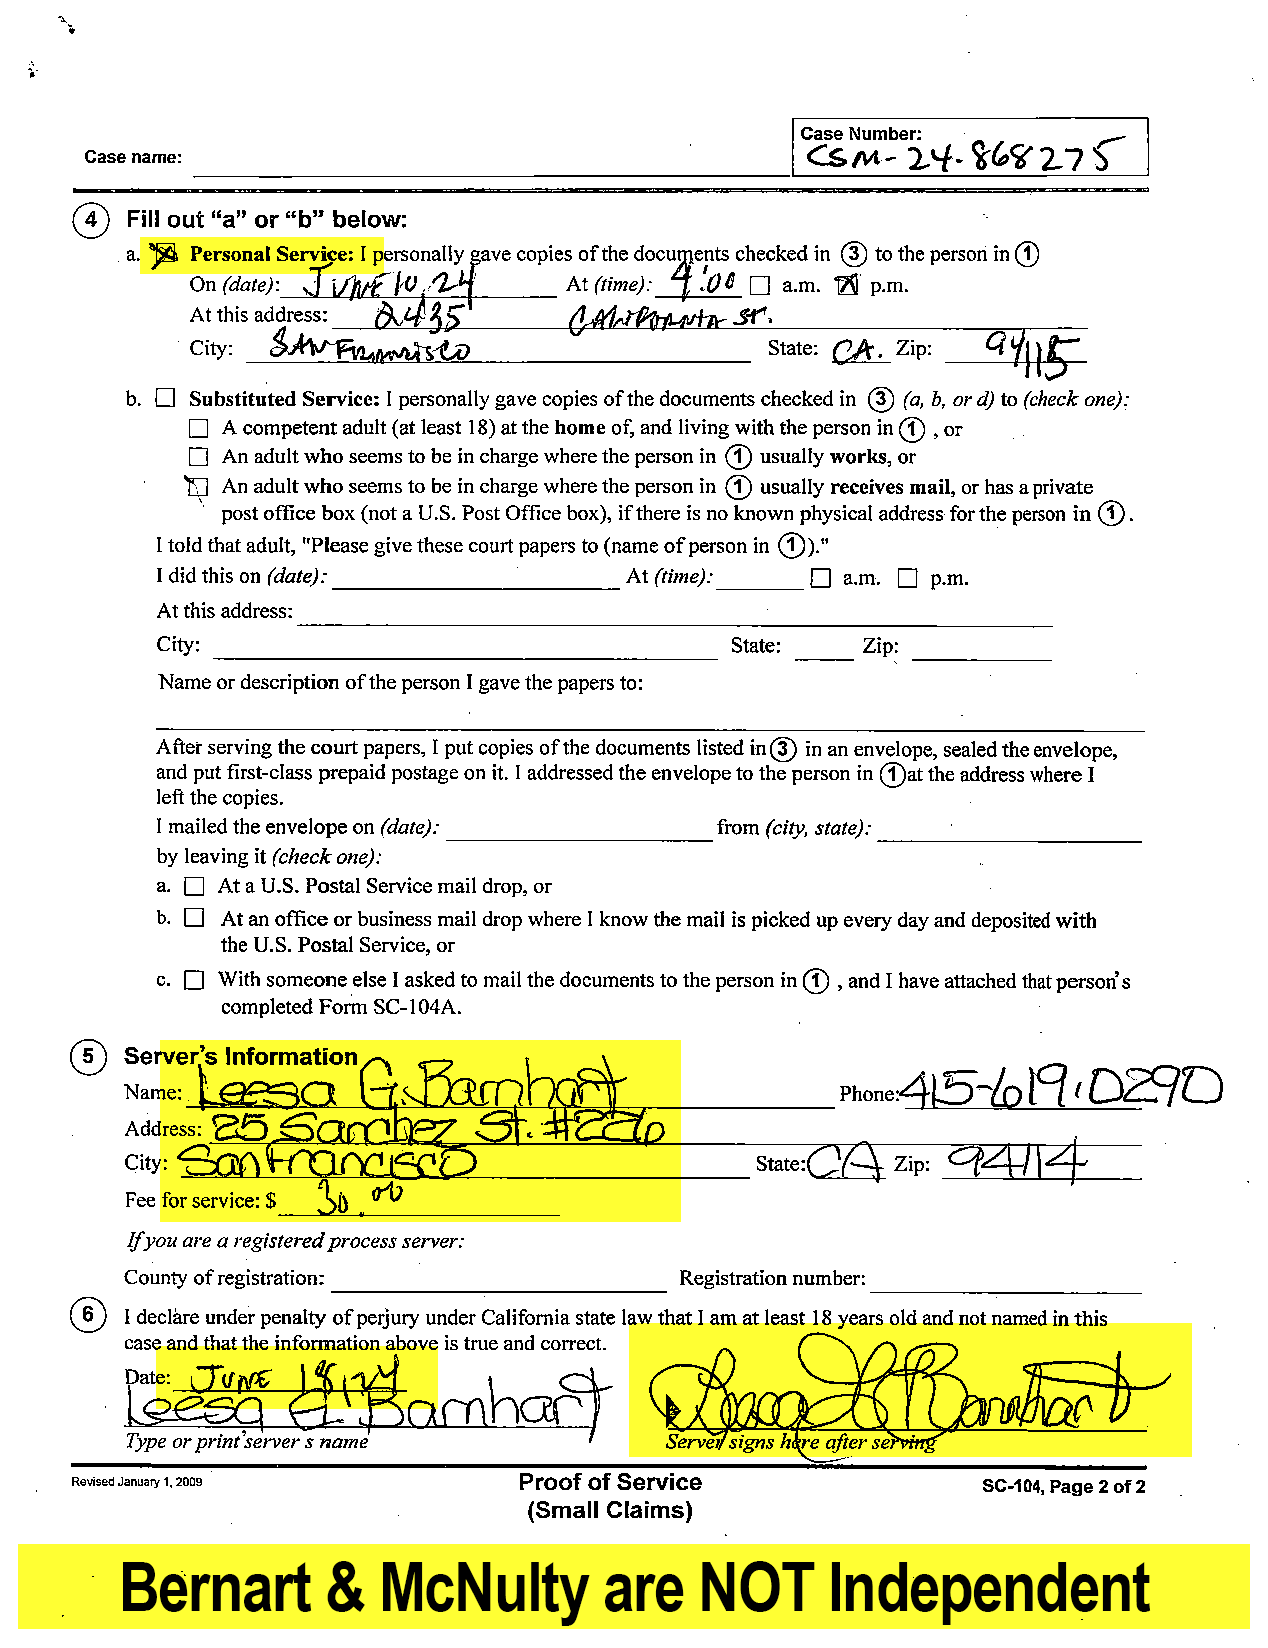 Case Number:
Case name:
CSM-24-868275
4 Fill out “a” or “b” below:
a. Personal Service: I personally gave copies of the documents checked in 3 to the person in 1
On (date): JUNE 10, 24 At (time): 4:00 a.m. p.m.
At this address: 2435 CALIFORNIA ST.
City: SAN FRANCISCO State: CA. Zip: 94115
b. Substituted Service: I personally gave copies of the documents checked in 3 (a, b, or d) to (check one):
A competent adult (at least 18) at the home of, and living with the person in 1 , or
An adult who seems to be in charge where the person in 1 usually works, or
An adult who seems to be in charge where the person in 1 usually receives mail, or has a private
post office box (not a U.S. Post Office box), if there is no known physical address for the person in 1 .
I told that adult, "Please give these court papers to (name of person in 1)."
I did this on (date): At (time): a.m. p.m.
At this address:
City: State: Zip:
Name or description of the person I gave the papers to:
After serving the court papers, I put copies of the documents listed in 3 in an envelope, sealed the envelope,
and put first-class prepaid postage on it. I addressed the envelope to the person in 1 at the address where I
left the copies.
I mailed the envelope on (date): from (city, state):
by leaving it (check one):
a. At a U.S. Postal Service mail drop, or
b. At an office or business mail drop where I know the mail is picked up every day and deposited with
the U.S. Postal Service, or
c. With someone else I asked to mail the documents to the person in 1 , and I have attached that person's
completed Form SC-104A.
5 Server's Information
Name: Leesa G. Barnhart Phone: 415-619-0290
Address: 25 Sanchez St. #226
City: San Francisco State: CA Zip: 94114
Fee for service: $ 30.00
If you are a registered process server:
County of registration: Registration number:
6 I declare under penalty of perjury under California state law that I am at least 18 years old and not named in this
case and that the information above is true and correct.
Date: JUNE 18, 24
Leesa G. Barnhart
Type or print server's name Server signs here after serving
Revised January 1, 2009 Proof of Service SC-104, Page 2 of 2
(Small Claims)
Bernart & McNulty are NOT Independent